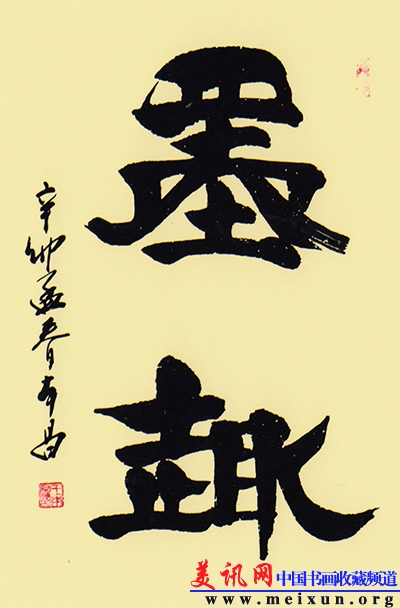 墨趣
辛卯孟春有昌
美讯网 中国书画收藏频道
www.meixun.org